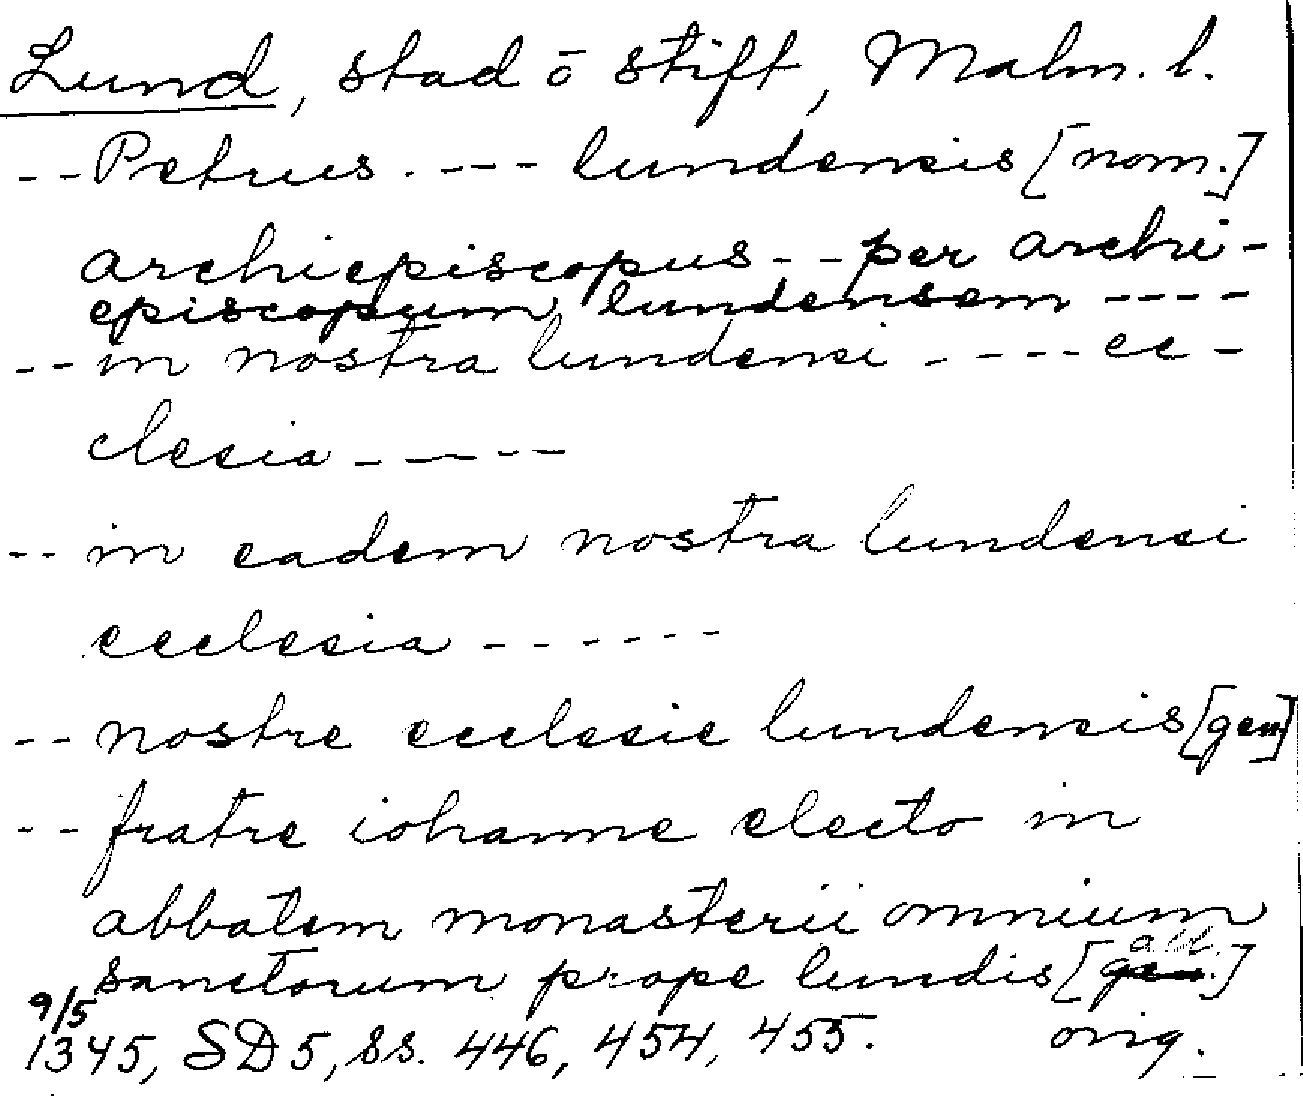 Lund, stad o stift, Malm. l.
-- Petrus . --- lundensis [nom.]
archiepiscopus -- per archi-
episcopum lundensem ----
-- in nostra lundensi ---- ec-
clesia -----
-- in eadem nostra lundensi
ecclesia ------
-- nostre ecclesie lundensis [gen]
-- fratre iohanne electo in
abbatem monasterii omnium
sanctorum prope lundis [gen. abl.]
9/5
1345, SD 5, ss. 446, 454, 455. orig.